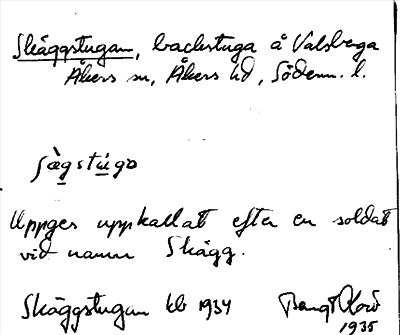 Skäggstugan, backstuga å Valsberga
Åkers sn, Åkers hd, Söderm. l.
Uppges uppkallat efter en soldat
vid namn Skägg.
Skäggstugan kb 1934 Bengt
1935